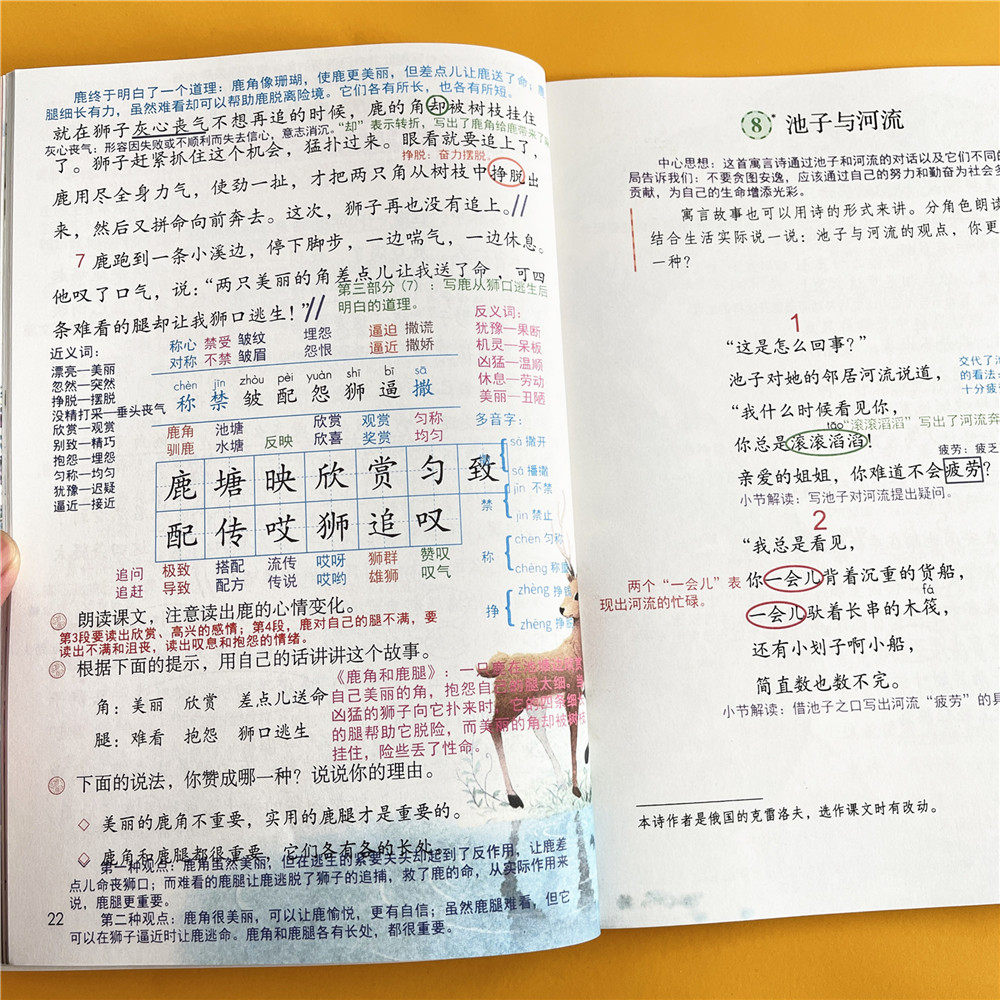 鹿终于明白了一个道理：鹿角像珊瑚，使鹿更美丽，但差点儿让鹿送了命；鹿
腿细长有力，虽然难看却可以帮助鹿脱离险境。它们各有所长，也各有所短。
就在狮子灰心丧气不想再追的时候，鹿的角却被树枝挂住
灰心丧气：形容因失败或不顺利而失去信心，意志消沉。“却”表示转折，写出了鹿角给鹿带来了
了。狮子赶紧抓住这个机会，猛扑过来。眼看就要追上了，
挣脱：奋力摆脱。
鹿用尽全身力气，使劲一扯，才把两只角从树枝中挣脱出
来，然后又拼命向前奔去。这次，狮子再也没有追上。
7 鹿跑到一条小溪边，停下脚步，一边喘气，一边休息。
他叹了口气，说：“两只美丽的角差点儿让我送了命，可四
第三部分（7）：写鹿从狮口逃生后
明白的道理。
条难看的腿却让我狮口逃生！”
近义词：
漂亮—美丽
忽然—突然
挣脱—摆脱
没精打采—垂头丧气
欣赏—观赏
别致—精巧
抱怨—埋怨
匀称—均匀
犹豫—迟疑
逼近—接近
反义词：
犹豫—果断
机灵—呆板
凶猛—温顺
休息—劳动
美丽—丑陋
称心 禁受 皱纹 埋怨 逼迫 撒谎
对称 不禁 皱眉 怨恨 逼近 撒娇
chèn jīn zhòu pèi yuàn shī bī sā
称 禁 皱 配 怨 狮 逼 撒
鹿角 池塘 欣赏 观赏 匀称
驯鹿 水塘 反映 欣喜 奖赏 均匀
鹿 塘 映 欣 赏 匀 致
配 传 哎 狮 追 叹
追问 极致 搭配 流传 哎呀 狮群 赞叹
追赶 导致 配方 传说 哎哟 雄狮 叹气
多音字：
sā 撒开
sǎ 播撒
禁
jīn 不禁
jìn 禁止
称
chèn 匀称
chēng 称
挣
zhèng 挣
zhēng 挣
朗读课文，注意读出鹿的心情变化。
第3段要读出欣赏、高兴的感情；第4段，鹿对自己的腿不满，要
读出不满和沮丧，读出叹息和抱怨的情绪。
根据下面的提示，用自己的话讲讲这个故事。
角：美丽 欣赏 差点儿送命
腿：难看 抱怨 狮口逃生
《鹿角和鹿腿》：一只
自己美丽的角，抱怨自己的腿太细，
凶猛的狮子向它扑来时，它的四条
的腿帮助它脱险，而美丽的角却被树
挂住，险些丢了性命。
下面的说法，你赞成哪一种？说说你的理由。
◇ 美丽的鹿角不重要，实用的鹿腿才是重要的。
◇ 鹿角和鹿腿都很重要，它们各有各的长处。
第一种观点：鹿角虽然美丽，但在逃生的紧要关头却起到了反作用，让鹿差
点儿命丧狮口；而难看的鹿腿让鹿逃脱了狮子的追捕，救了鹿的命，从实际作用来
说，鹿腿更重要。
第二种观点：鹿角很美丽，可以让鹿愉悦，更有自信；虽然鹿腿难看，但它
可以在狮子逼近时让鹿逃命。鹿角和鹿腿各有长处，都很重要。
22
8* 池子与河流
中心思想：这首寓言诗通过池子和河流的对话以及它们不同的
局告诉我们：不要贪图安逸，应该通过自己的努力和勤奋为社会多
贡献，为自己的生命增添光彩。
寓言故事也可以用诗的形式来讲。分角色朗读
结合生活实际说一说：池子与河流的观点，你更
一种？
1
“这是怎么回事？”
池子对她的邻居河流说道，
交代了池
的看法：
十分疲劳
“我什么时候看见你，
tāo“滚滚滔滔”写出了河流奔
你总是滚滚滔滔！
疲劳：疲乏
亲爱的姐姐，你难道不会疲劳？
小节解读：写池子对河流提出疑问。
2
“我总是看见，
两个“一会儿”表
现出河流的忙碌。
你一会儿背着沉重的货船，
fá
一会儿驮着长串的木筏，
还有小划子啊小船，
简直数也数不完。
小节解读：借池子之口写出河流“疲劳”的具
本诗作者是俄国的克雷洛夫，选作课文时有改动。